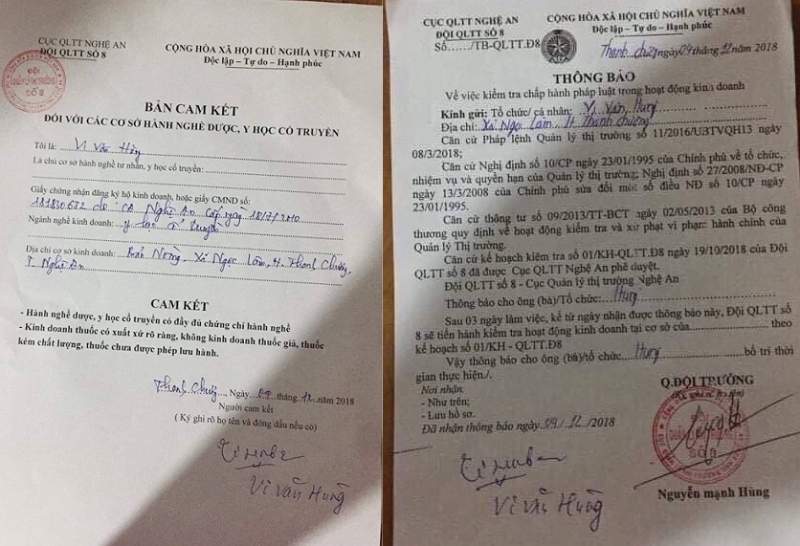 CỤC QLTT NGHỆ AN
ĐỘI QLTT SỐ 8
CỘNG HÒA XÃ HỘI CHỦ NGHĨA VIỆT NAM
Độc lập - Tự do - Hạnh phúc
ĐỘI
QUẢN LÝ THỊ TRƯỜNG
SỐ 8
BẢN CAM KẾT
ĐỐI VỚI CÁC CƠ SỞ HÀNH NGHỀ DƯỢC, Y HỌC CỔ TRUYỀN
Tôi là: Vi Văn Hùng
Là chủ cơ sở hành nghề tư nhân, y học cổ truyền:
Giấy chứng nhận đăng ký hộ kinh doanh, hoặc giấy CMND số:
181830672 do CA Nghệ An cấp ngày 18/7/2010
Ngành nghề kinh doanh: y học cổ truyền
Địa chỉ cơ sở kinh doanh: Bản Nòng, Xã Ngọc Lâm, H. Thanh Chương,
T. Nghệ An
CAM KẾT
- Hành nghề dược, y học cổ truyền có đầy đủ chứng chỉ hành nghề
- Kinh doanh thuốc có xuất xứ rõ ràng, không kinh doanh thuốc giả, thuốc
kém chất lượng, thuốc chưa được phép lưu hành.
Thanh Chương, Ngày 09 tháng 12 năm 2018
Người cam kết
( Ký ghi rõ họ tên và đóng dấu nếu có)
Vi Văn Hùng
CỤC QLTT NGHỆ AN
ĐỘI QLTT SỐ 8
Số....../TB-QLTT.Đ8
CỘNG HÒA XÃ HỘI CHỦ NGHĨA VIỆT NAM
Độc lập - Tự do - Hạnh phúc
Thanh Chương ngày 09 tháng 12 năm 2018
THÔNG BÁO
Về việc kiểm tra chấp hành pháp luật trong hoạt động kinh doanh
Kính gửi: Tổ chức/ cá nhân: Vi Văn Hùng
Địa chỉ: Xã Ngọc Lâm, H. Thanh Chương
Căn cứ Pháp lệnh Quản lý thị trường số 11/2016/UBTVQH13 ngày
08/3/2018;
Căn cứ Nghị định số 10/CP ngày 23/01/1995 của Chính phủ về tổ chức,
nhiệm vụ và quyền hạn của Quản lý thị trường; Nghị định số 27/2008/NĐ-CP
ngày 13/3/2008 của Chính phủ sửa đổi một số điều NĐ số 10/CP ngày
23/01/1995.
Căn cứ thông tư số 09/2013/TT-BCT ngày 02/05/2013 của Bộ công
thương quy định về hoạt động kiểm tra và xử phạt vi phạm hành chính của
Quản lý Thị trường.
Căn cứ kế hoạch kiểm tra số 01/KH-QLTT.Đ8 ngày 19/10/2018 của Đội
QLTT số 8 đã được Cục QLTT Nghệ An phê duyệt.
Đội QLTT số 8 - Cục Quản lý thị trường Nghệ An
Thông báo cho ông (bà)/Tổ chức: Hùng
Sau 03 ngày làm việc, kể từ ngày nhận được thông báo này, Đội QLTT số
8 sẽ tiến hành kiểm tra hoạt động kinh doanh tại cơ sở của............ theo
kế hoạch số 01/KH - QLTT.Đ8
Vậy thông báo cho ông (bà)/tổ chức Hùng bố trí thời
gian thực hiện./.
Nơi nhận:
- Như trên;
- Lưu hồ sơ.
Đã nhận thông báo ngày 09/12/2018
Q.ĐỘI TRƯỞNG
SỐ 8
Vi Văn Hùng
Nguyễn mạnh Hùng